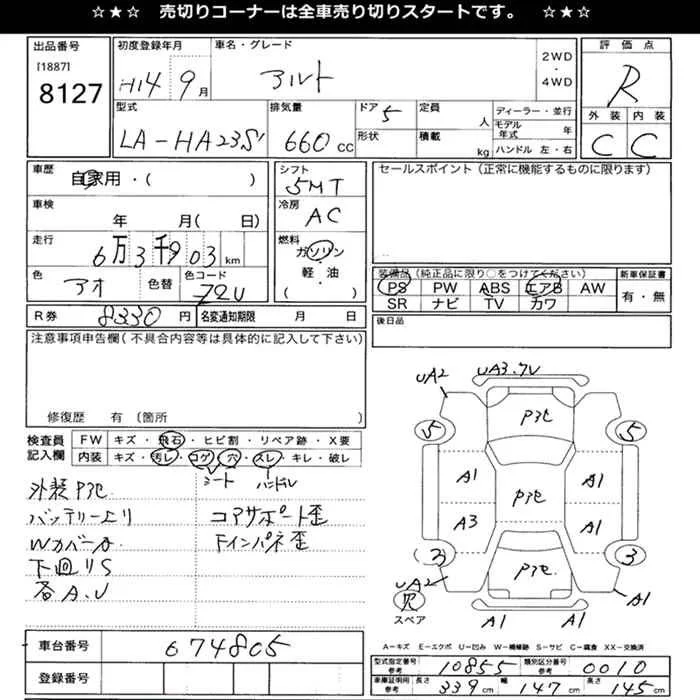 ☆★☆ 売切りコーナーは全車売り切りスタートです。 ☆★☆
出品番号
[1887]
8127
初度登録年月
H14 9月
車名・グレード
アルト
2WD
・
4WD
評価点
R
外装 内装
C C
型式
LA-HA23S
排気量
660 cc
ドア 5
形状
定員 人
積載 kg
ディーラー・並行
モデル年式 年
ハンドル 左・右
車歴
自家用・( )
車検
年 月( 日)
走行
6万3千903 km
色
アオ
色替
色コード
Z2U
シフト
5MT
冷房
AC
燃料
ガソリン
・
軽・油
( )
セールスポイント(正常に機能するものに限ります)
装備品(純正品に限り○をつけてください)
PS PW ABS エアB AW
SR ナビ TV カワ
新車保証書
有・無
後日品
R券 8330 円
名変通知期限 月 日
注意事項申告欄(不具合内容等は具体的に記入して下さい)
修復歴 有 〔箇所 〕
検査員
記入欄
FW キズ・飛石・ヒビ割・リペア跡・X要
内装 キズ・汚レ・コゲ・穴・スレ・キレ・破レ
シート ハンドル
外装P3セ
バッテリー上リ
Wカバーカ
下回リS
各A.U
コアサポート歪
Fインパネ歪
UA2 UA3.7U
P3セ
5 5
A1 A1
P3セ
A3 A1
3 3
P3セ
UA2 A1
欠
スペア
A1 A1
A-キズ E-エクボ U-凹み W-補修跡 S-サビ C-腐食 XX-交換済
車台番号 674805
登録番号
型式指定番号
参考
10855
類別区分番号
参考
0010
車庫証明用
参考
長さ 339 cm
幅 147 cm
高さ 145 cm